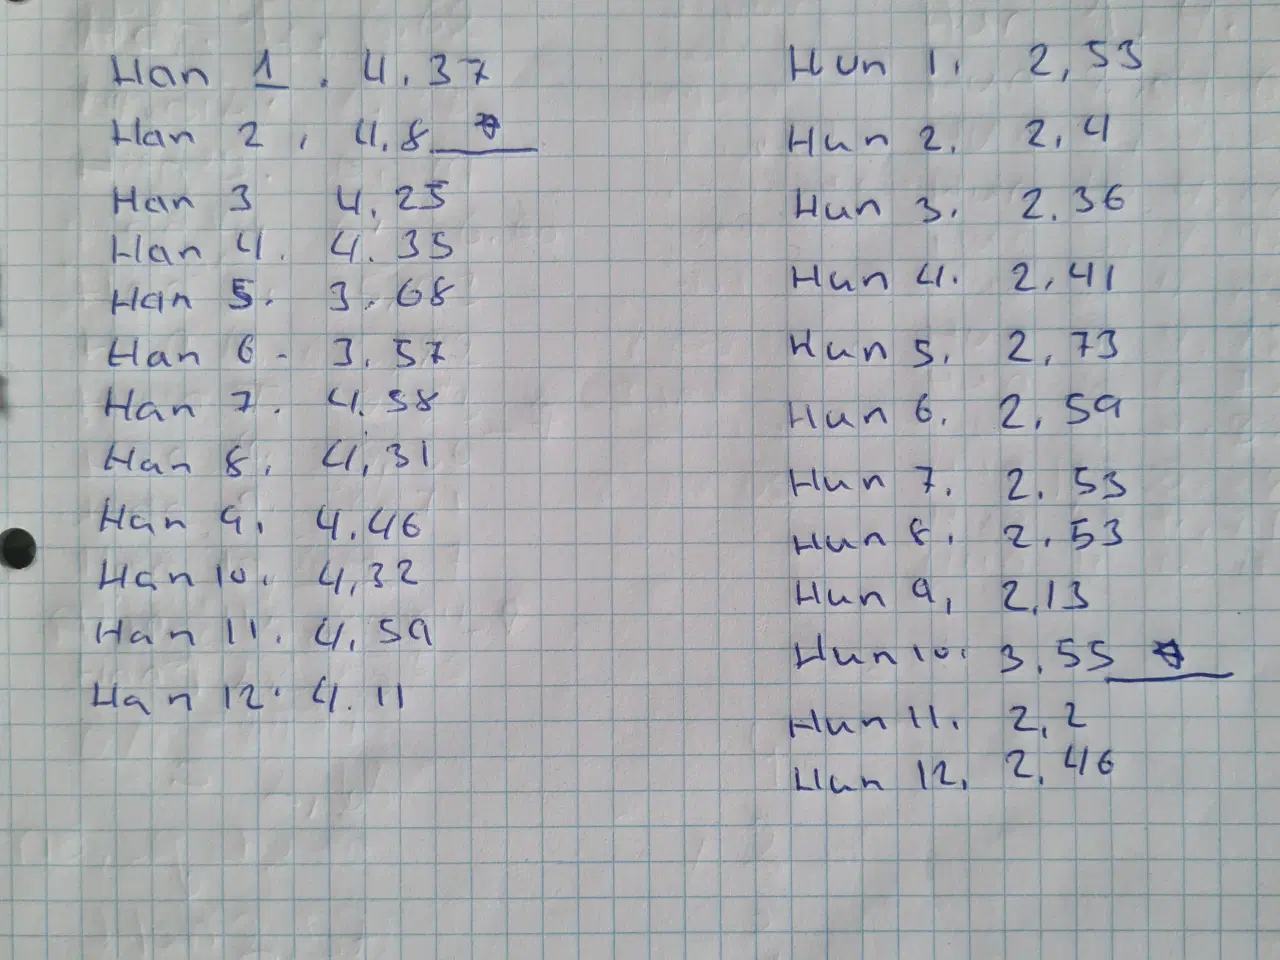 Han 1. 4.37
Han 2, 4.8
Han 3 4.25
Han 4. 4.35
Han 5. 3.68
Han 6- 3.57
Han 7. 4.58
Han 8. 4.31
Han 9. 4.46
Han 10. 4,32
Han 11. 4.59
Han 12. 4.11
Hun 1. 2,53
Hun 2. 2,4
Hun 3. 2.36
Hun 4. 2,41
Hun 5. 2,73
Hun 6. 2,59
Hun 7. 2.53
Hun 8. 2.53
Hun 9, 2,13
Hun 10. 3.55
Hun 11. 2,2
Hun 12. 2.46